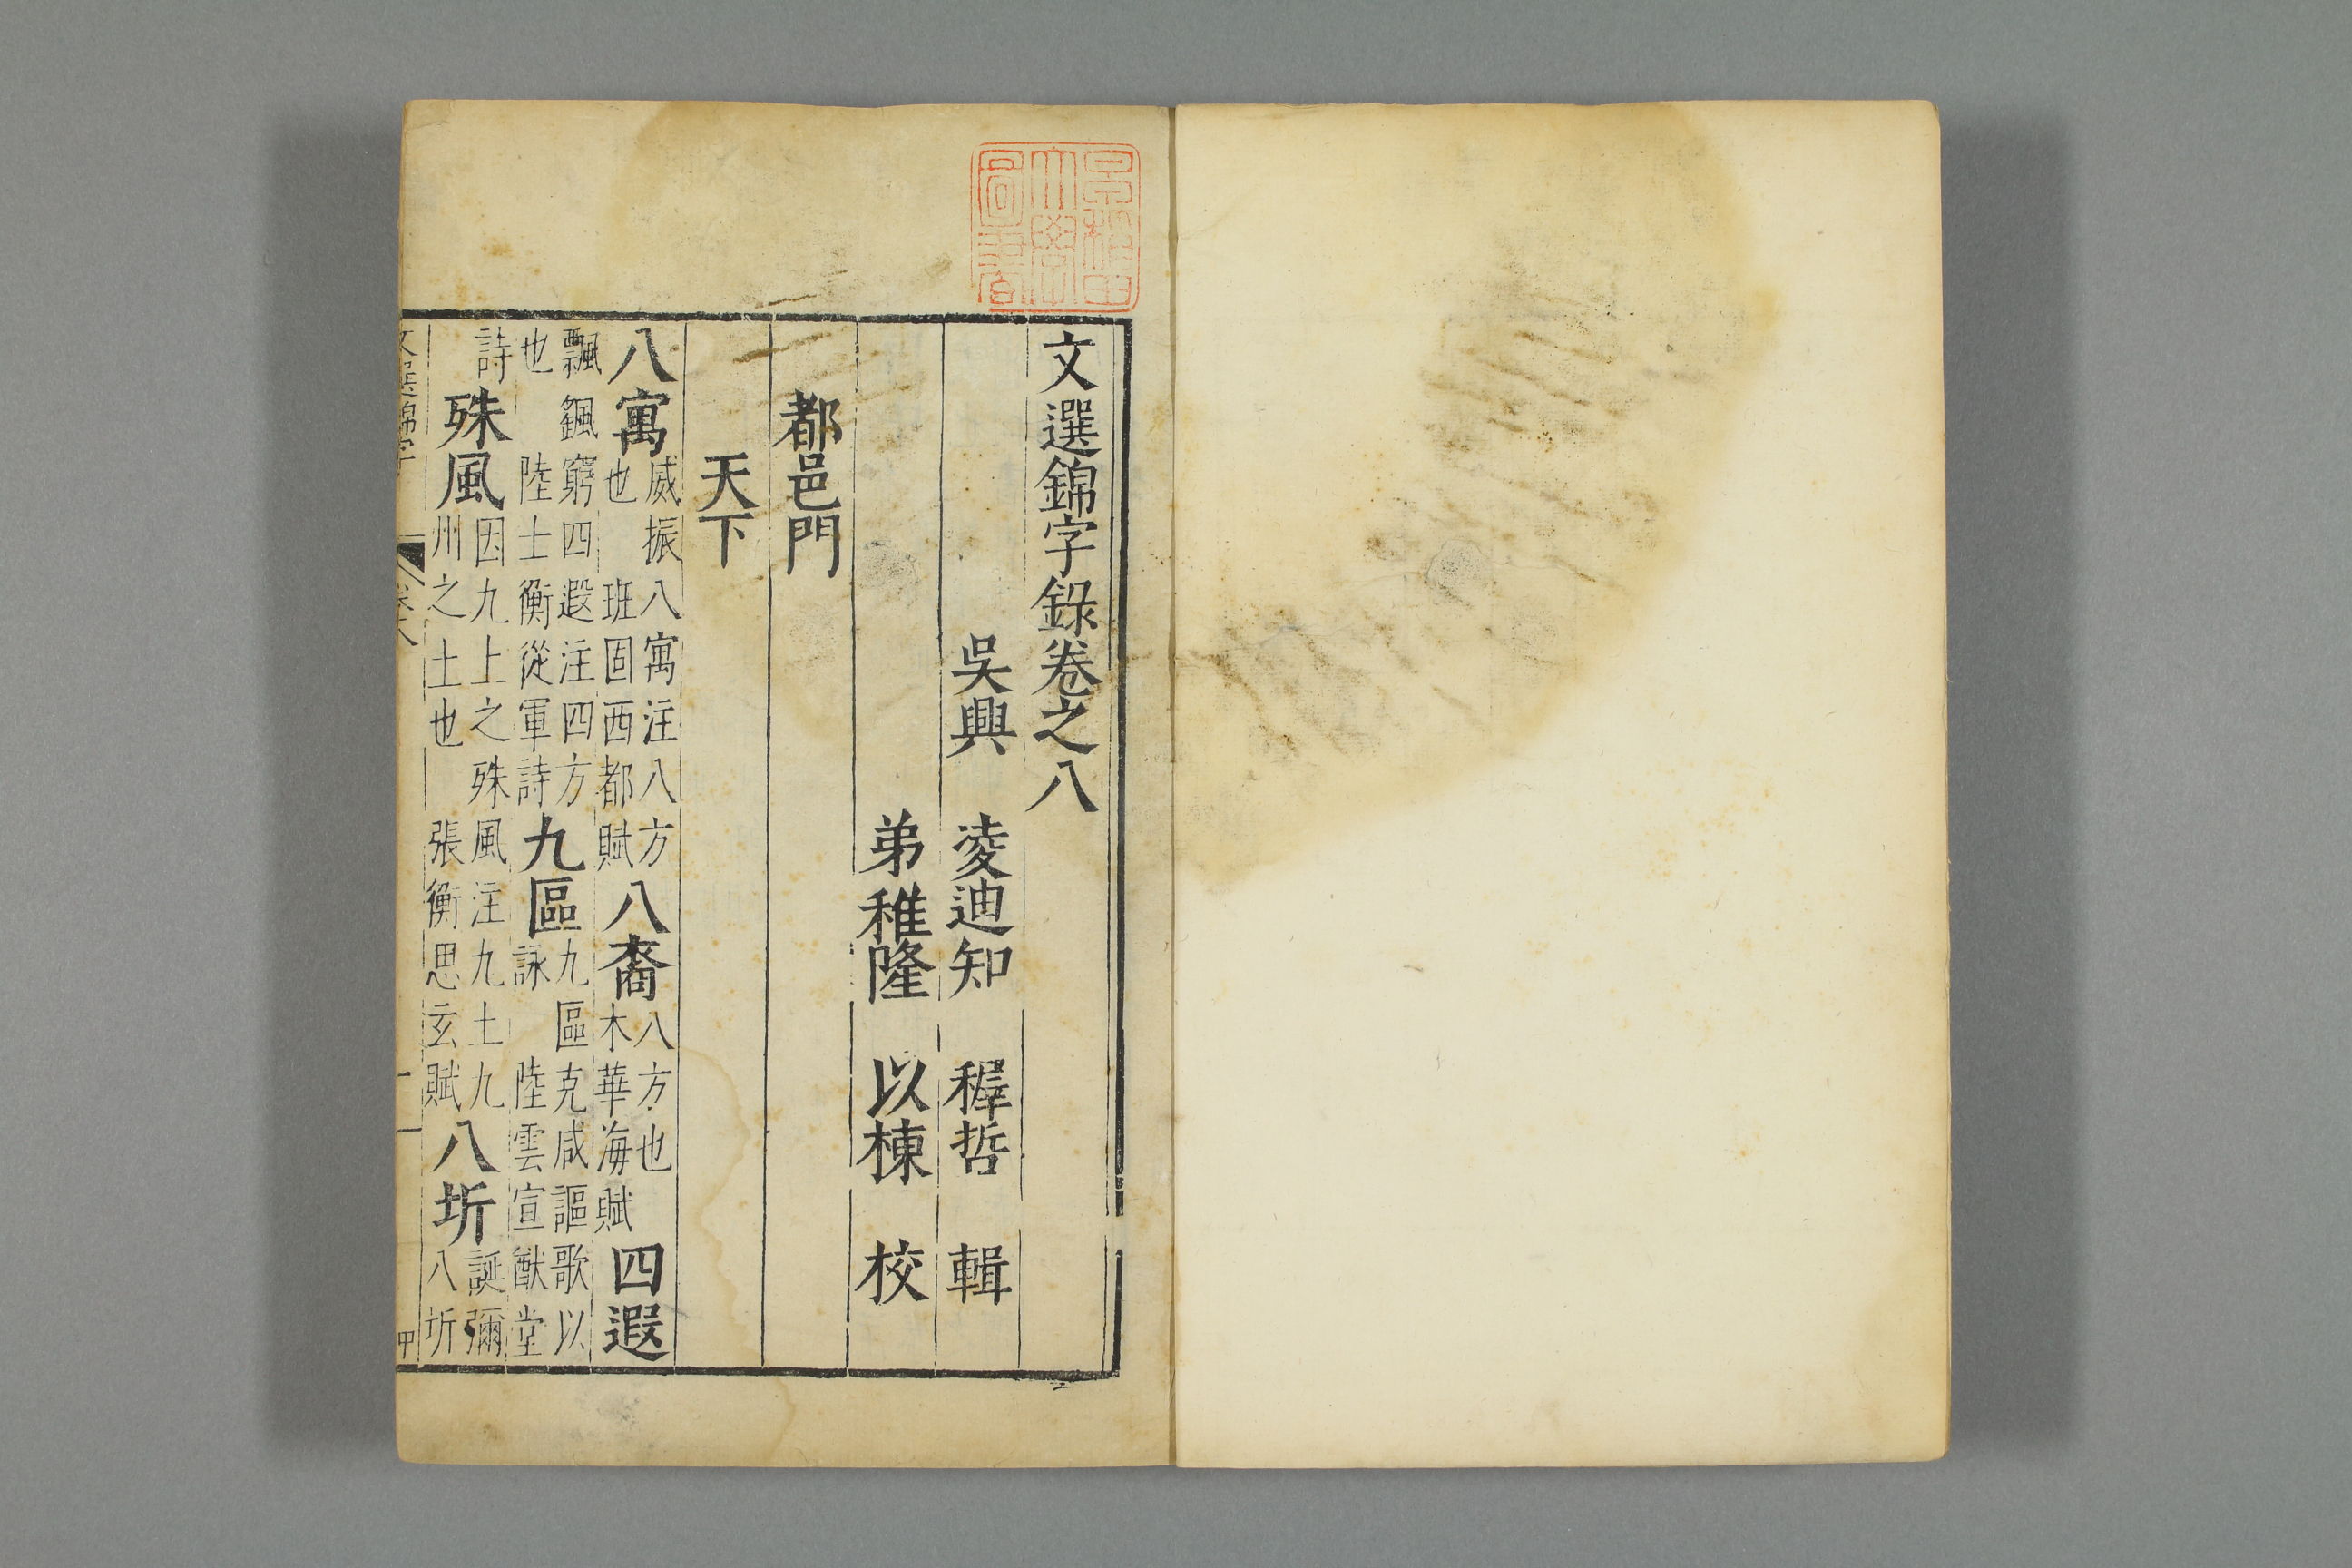 早稻田
大學
圖書
文選錦字錄卷之八
吳興 凌迪知 穉哲 輯
弟稚隆 以棟 校
都邑門
天下
八寓威振八寓注八方也 班固西都賦八裔八方也木華海賦四遐
飄颻窮四遐注四方也 陸士衡從軍詩九區九區克咸謳歌以詠 陸雲宣猷堂
詩殊風因九上之殊風注九土九州之土也 張衡思玄賦八圻誕彌八圻
文選錦字 卷八 一 甲